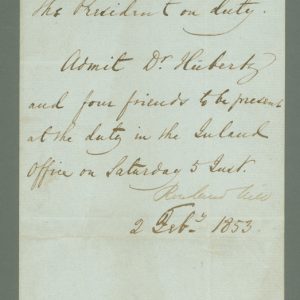 the President on duty.
Admit Dr. Hübertz
and four friends to be present
at the duty in the Inland
Office on Saturday 5 Inst.
Rowland Hill
2 Feby 1853.